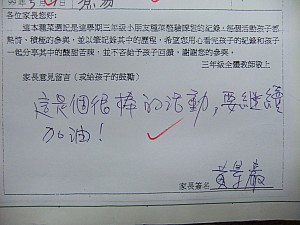 各位家長您好:
這本種菜週記是這學期三年級小朋友種菜體驗課程的紀錄,每個活動孩子都
熱情、積極的參與,並以筆記錄其中的歷程,希望您用心看完孩子的紀錄和孩子
一起分享其中的酸甜苦辣,並不吝給予孩子回饋,謝謝您的參與。
三年級全體教師敬上
家長意見留言(或給孩子的鼓勵)
這是個很棒的活動,要繼續
加油!
家長簽名